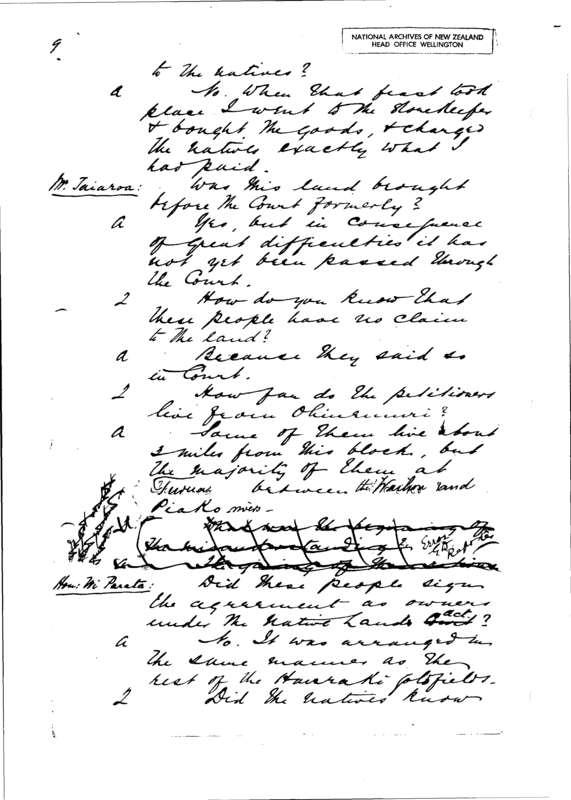 9
NATIONAL ARCHIVES OF NEW ZEALAND
HEAD OFFICE WELLINGTON
to the natives?
a No. When that feast took
place I went to the Storekeeper
& bought the goods, & charged
the natives exactly what I
had paid.
Mr. Taiaroa: Was this land brought
before the Court formerly?
a Yes, but in consequence
of great difficulties it has
not yet been passed through
the Court.
2 How do you know that
these people have no claim
to the land?
a Because they said so
in Court.
2 How far do the petitioners
live from Ohinemuri?
a Some of them live about
2 miles from this block, but
the majority of them at
between the Waihou and
Piako
the beginning of
the misunderstanding
Error
the
Hon: Wi Parata: Did these people sign
the agreement as owners
under the Native Lands act?
a No. It was arranged in
the same manner as the
rest of the Hauraki goldfields.
2 Did the natives know